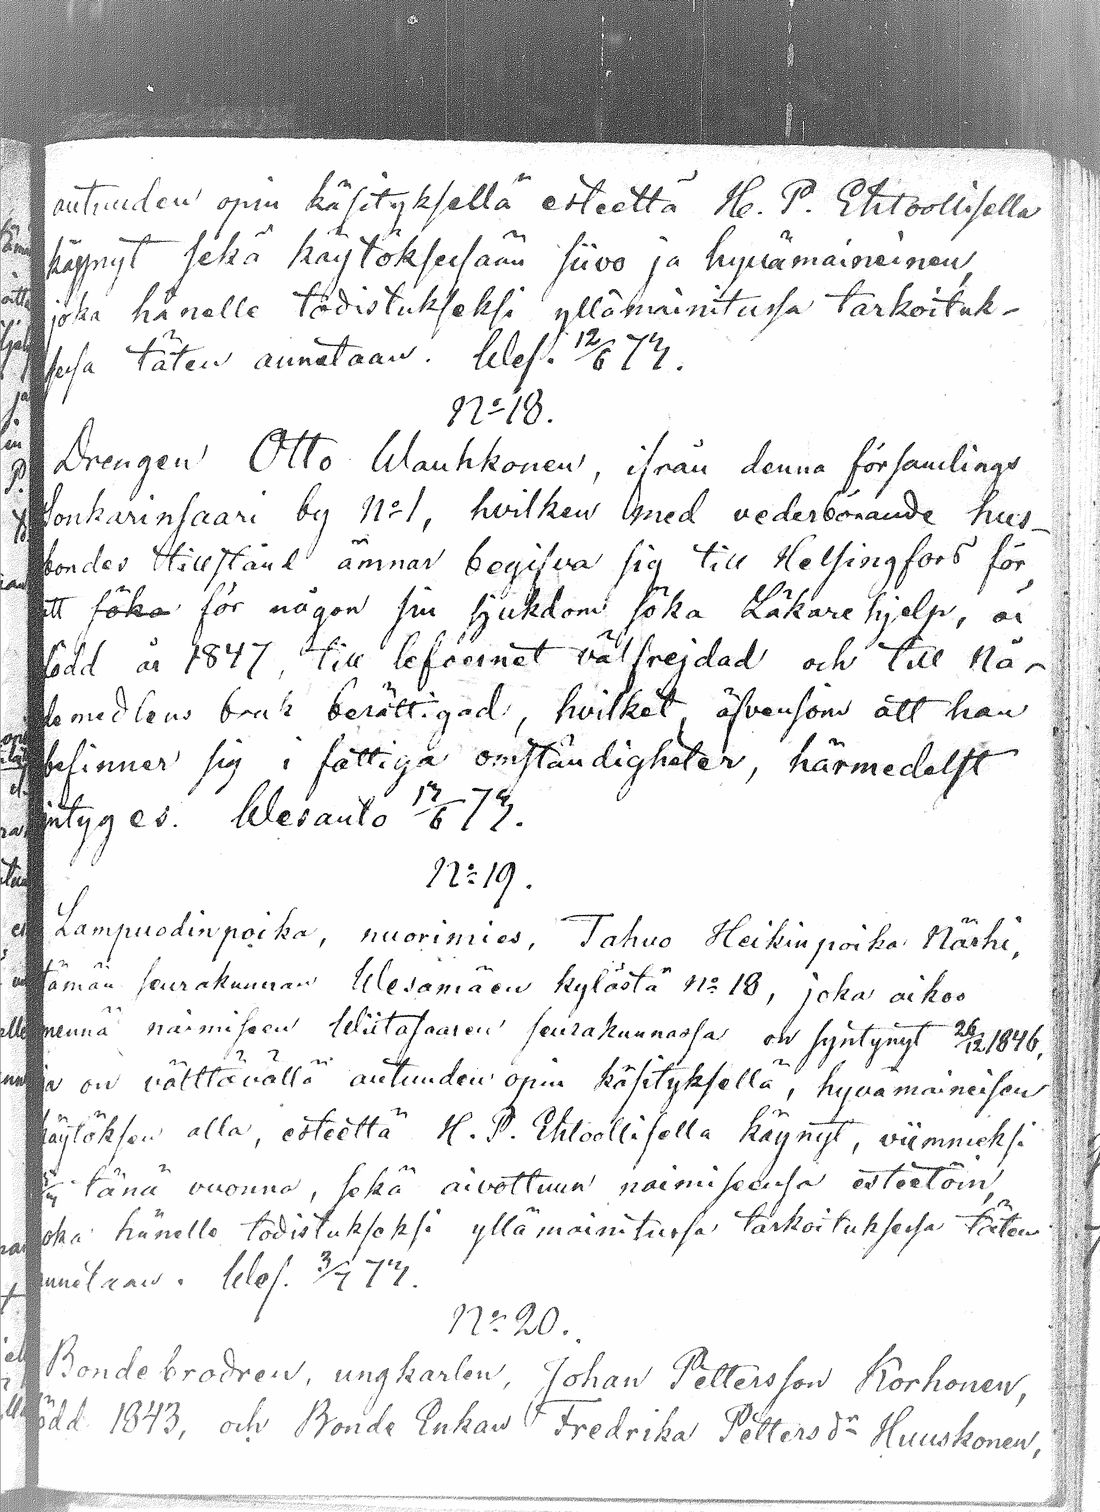 autuuden opin käsityksellä esteettä H. P. Ehtoollisella
käynyt sekä käytöksesään siivo ja hyvämaineinen,
joka hänelle todistukseksi yllämainitussa tarkoituk-
sessa täten annetaan. Wes. 12/6 77.
No 18.
Drengen Otto Wauhkonen, ifrån denna församlings
Sonkarinsaari by No 1, hvilken med vederbörande hus-
bondes tillstånd ämnar begifva sig till Helsingfors för
att söka för någon sin sjukdom söka Läkarehjelp, är
född år 1847, till lefvernet välfrejdad och till Nå-
demedlens bruk berättigad, hvilket, äfvensom att han
befinner sig i fattiga omständigheter, härmedelst
intyges. Wesanto 17/6 77.
No 19.
Lampuodinpoika, nuorimies, Tahvo Heikinpoika Närhi,
tämän seurakunnan Wesamäen kylästä No 18, joka aikoo
mennä naimiseen Wiitasaaren seurakunnassa on syntynyt 26/12 1846,
ja on välttävällä autuuden opin käsityksellä, hyvämaineisen
käytöksen alla, esteettä H. P. Ehtoollisella käynyt, viimmeksi
tänä vuonna, sekä aivottuun naimiseensa esteetöin,
joka hänelle todistukseksi yllämainitussa tarkoituksessa täten
annetaan. Wes. 3/7 77.
No 20.
Bondebrodren, ungkarlen, Johan Pettersson Korhonen,
född 1843, och Bonde Enkan Fredrika Pettersdr Huuskonen,